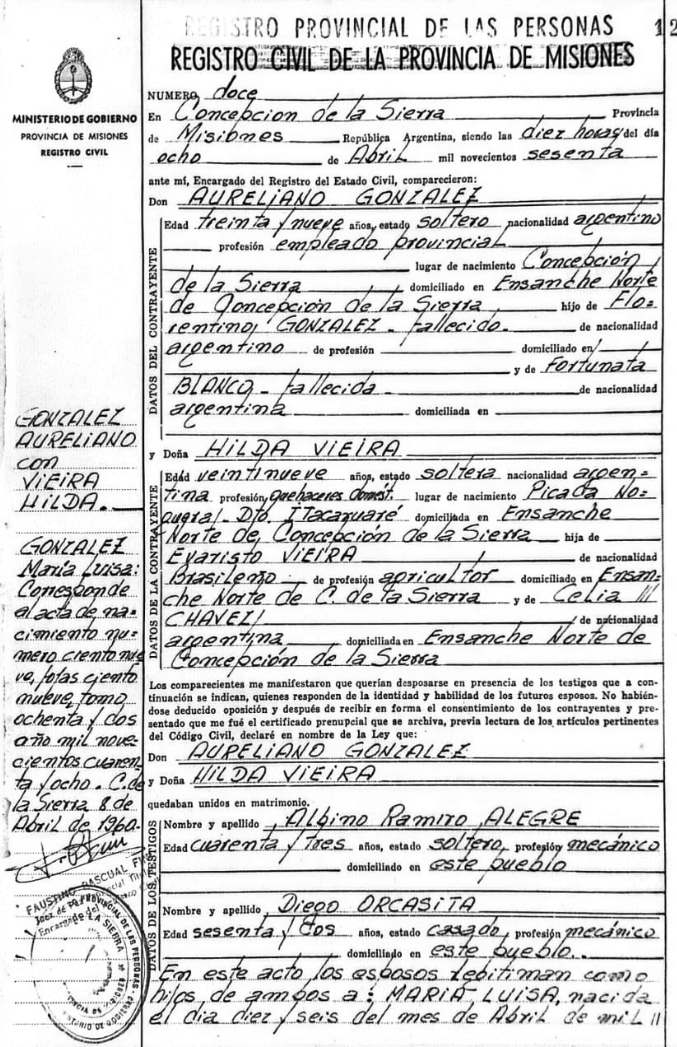 REGISTRO PROVINCIAL DE LAS PERSONAS 12
REGISTRO CIVIL DE LA PROVINCIA DE MISIONES
MINISTERIO DE GOBIERNO
PROVINCIA DE MISIONES
REGISTRO CIVIL
NUMERO doce
En Concepcion de la Sierra Provincia
de Misiones República Argentina, siendo las diez horas del día
ocho de Abril mil novecientos sesenta
ante mí, Encargado del Registro del Estado Civil, comparecieron:
Don AURELIANO GONZALEZ
DATOS DEL CONTRAYENTE
Edad treinta y nueve años, estado soltero nacionalidad argentino
profesión empleado provincial
lugar de nacimiento Concepción
de la Sierra domiciliado en Ensanche Norte
de Concepción de la Sierra hijo de Flo=
rentino GONZALEZ - fallecido - de nacionalidad
argentino de profesión domiciliado en
y de Fortunata
BLANCO - fallecida de nacionalidad
argentina domiciliada en
y Doña HILDA VIEIRA
DATOS DE LA CONTRAYENTE
Edad veintinueve años, estado soltera nacionalidad argen=
tina profesión quehaceres domést. lugar de nacimiento Picada No=
guera - Dto. Itacaruaré domiciliada en Ensanche
Norte de Concepción de la Sierra hija de
Evaristo VIEIRA de nacionalidad
Brasilero de profesión agricultor domiciliado en Ensan=
che Norte de C. de la Sierra y de Celia //
CHAVEZ de nacionalidad
argentina domiciliada en Ensanche Norte de
Concepción de la Sierra
Los comparecientes me manifestaron que querían desposarse en presencia de los testigos que a con-
tinuación se indican, quienes responden de la identidad y habilidad de los futuros esposos. No habién-
dose deducido oposición y después de recibir en forma el consentimiento de los contrayentes y pre-
sentado que me fué el certificado prenupcial que se archiva, previa lectura de los artículos pertinentes
del Código Civil, declaré en nombre de la Ley que:
Don AURELIANO GONZALEZ
y Doña HILDA VIEIRA
quedaban unidos en matrimonio.
DATOS DE LOS TESTIGOS
Nombre y apellido Albino Ramiro ALEGRE
Edad cuarenta y tres años, estado soltero, profesión mecánico
domiciliado en este pueblo
Nombre y apellido Diego ORCASITA
Edad sesenta y dos años, estado casado, profesión mecánico
domiciliado en este pueblo.
En este acto los esposos legitiman como
hijos de ambos a: MARIA LUISA, nacida
el día diez y seis del mes de Abril de mil //
GONZALEZ
AURELIANO
con
VIEIRA
HILDA.
GONZALEZ
María Luisa:
Corresponde
el acta de na=
cimiento nu=
mero ciento nue
ve, fojas ciento
nueve, tomo
ochenta y dos
año mil nove=
cientos cuaren
ta y ocho. C. de
la Sierra 8 de
Abril de 1960.
FAUSTINO PASCUAL
Juez de Paz
Encargado del